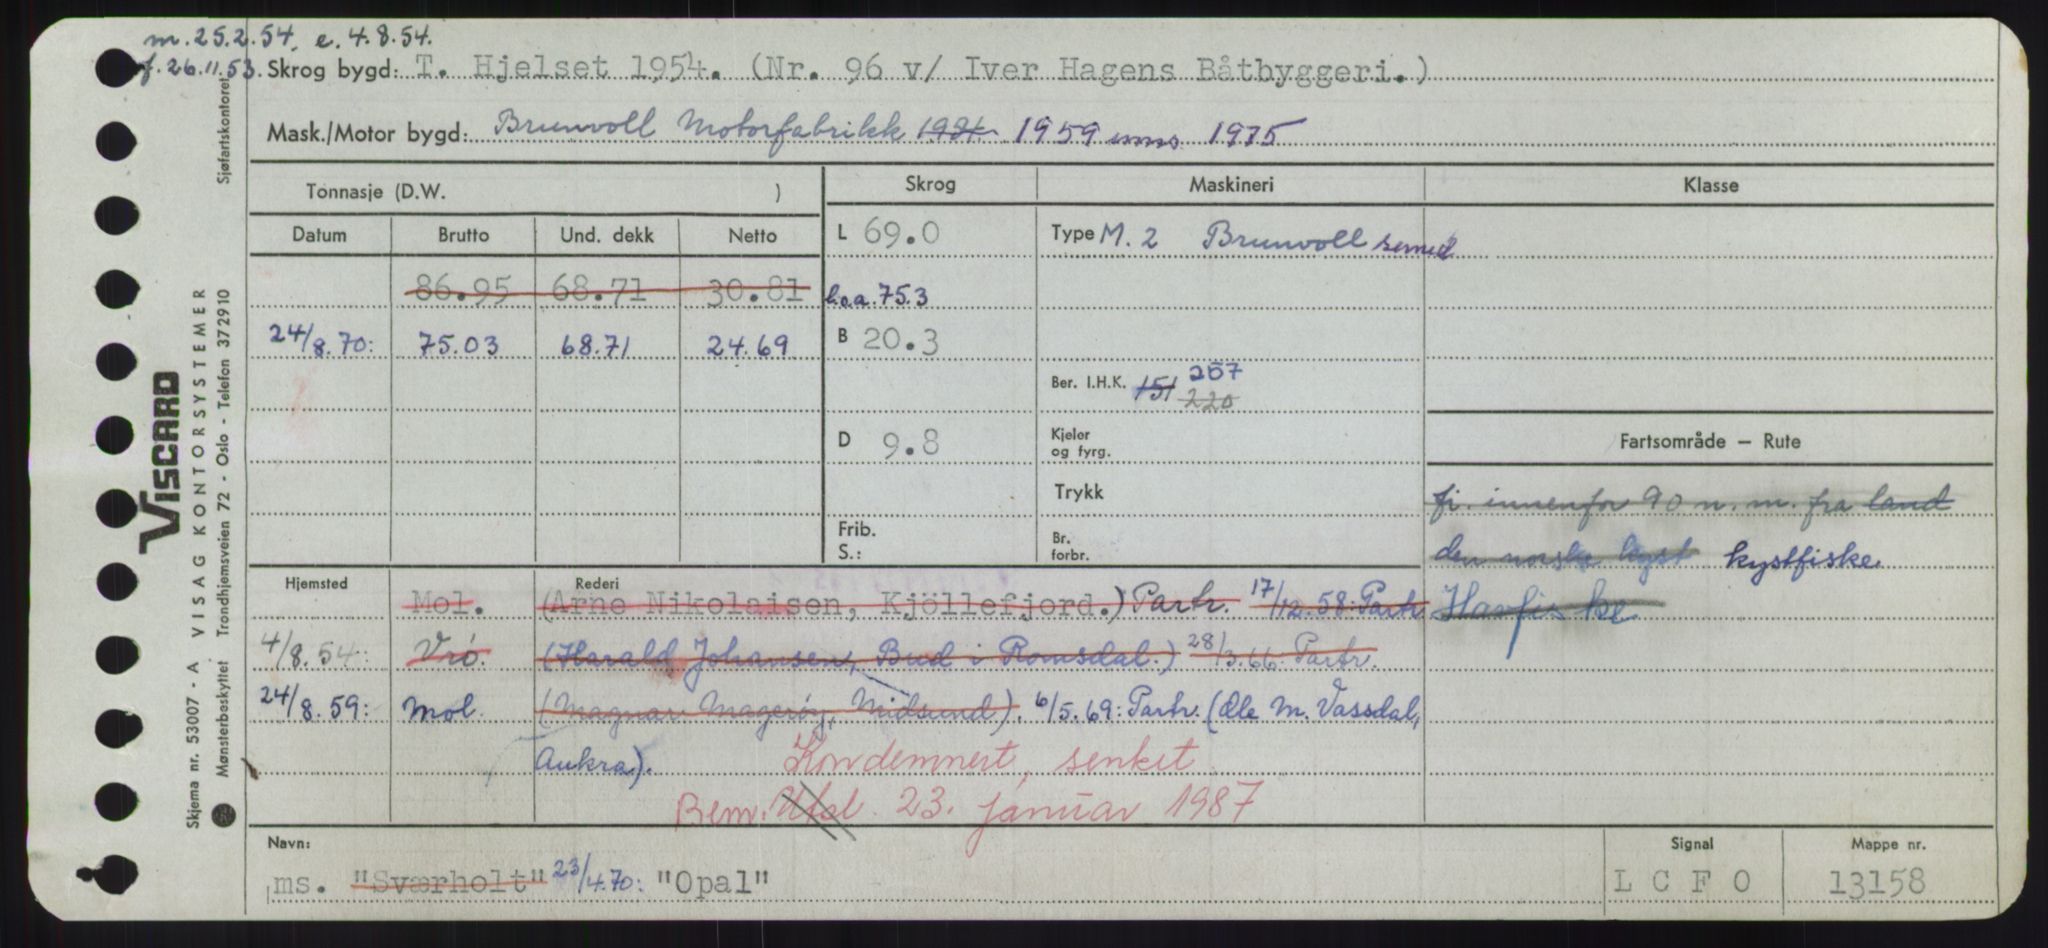 m. 25.2.54. e. 4.8.54.
f. 26.11.53. Skrog bygd: T. Hjelset 1954. (Nr. 96 v/ Iver Hagens Båtbyggeri.)
Mask./Motor bygd: Brunvoll Motorfabrikk 1959 1975
Tonnasje (D.W. )
Skrog Maskineri Klasse
Datum Brutto Und. dekk Netto
L 69.0 Type M. 2 Brunvoll semid
86.95 68.71 30.81 l.o.a. 75.3
24/8.70: 75.03 68.71 24.69 B 20.3
Ber. I.H.K. 151 220 267
D 9.8 Kjeler og fyrg.
Fartsområde — Rute
Trykk
fi. innenfor 90 n. m. fra land
Frib. S.: Br. forbr.
den norske kyst kystfiske.
Havfiske
Hjemsted Rederi
Mol. (Arne Nikolaisen, Kjöllefjord.) Partr. 17/12.58: Partr
4/8.54: Vrö. (Harald Johansen, Bud i Romsdal.) 28/3.66 Partr.
24/8.59: Mol. (Magnar Magerøy, Midsund). 6/5.69: Partr. (Ole M. Vassdal,
Aukra). Kondemnert, senket
Bem. Utsl. 23. januar 1987
Navn: Signal Mappe nr.
ms. "Sværholt" 23/4.70: "Opal" L C F O 13158
Sjøfartskontoret
VISCARD
VISAG KONTORSYSTEMER
Skjema nr. 53007 - A
Mønsterbeskyttet Trondhjemsveien 72 - Oslo - Telefon 372910